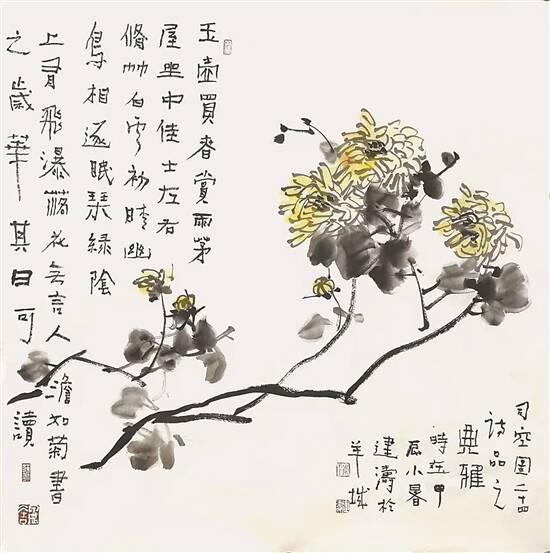 玉壺買春賞雨茅
屋坐中佳士左右
脩竹白雲初晴幽
鳥相逐眠琴綠陰
上有飛瀑落花无言人澹如菊書
之歲華其曰可讀
司空圖二十四
詩品之
典雅
時在甲
辰小暑
建濤於
羊城